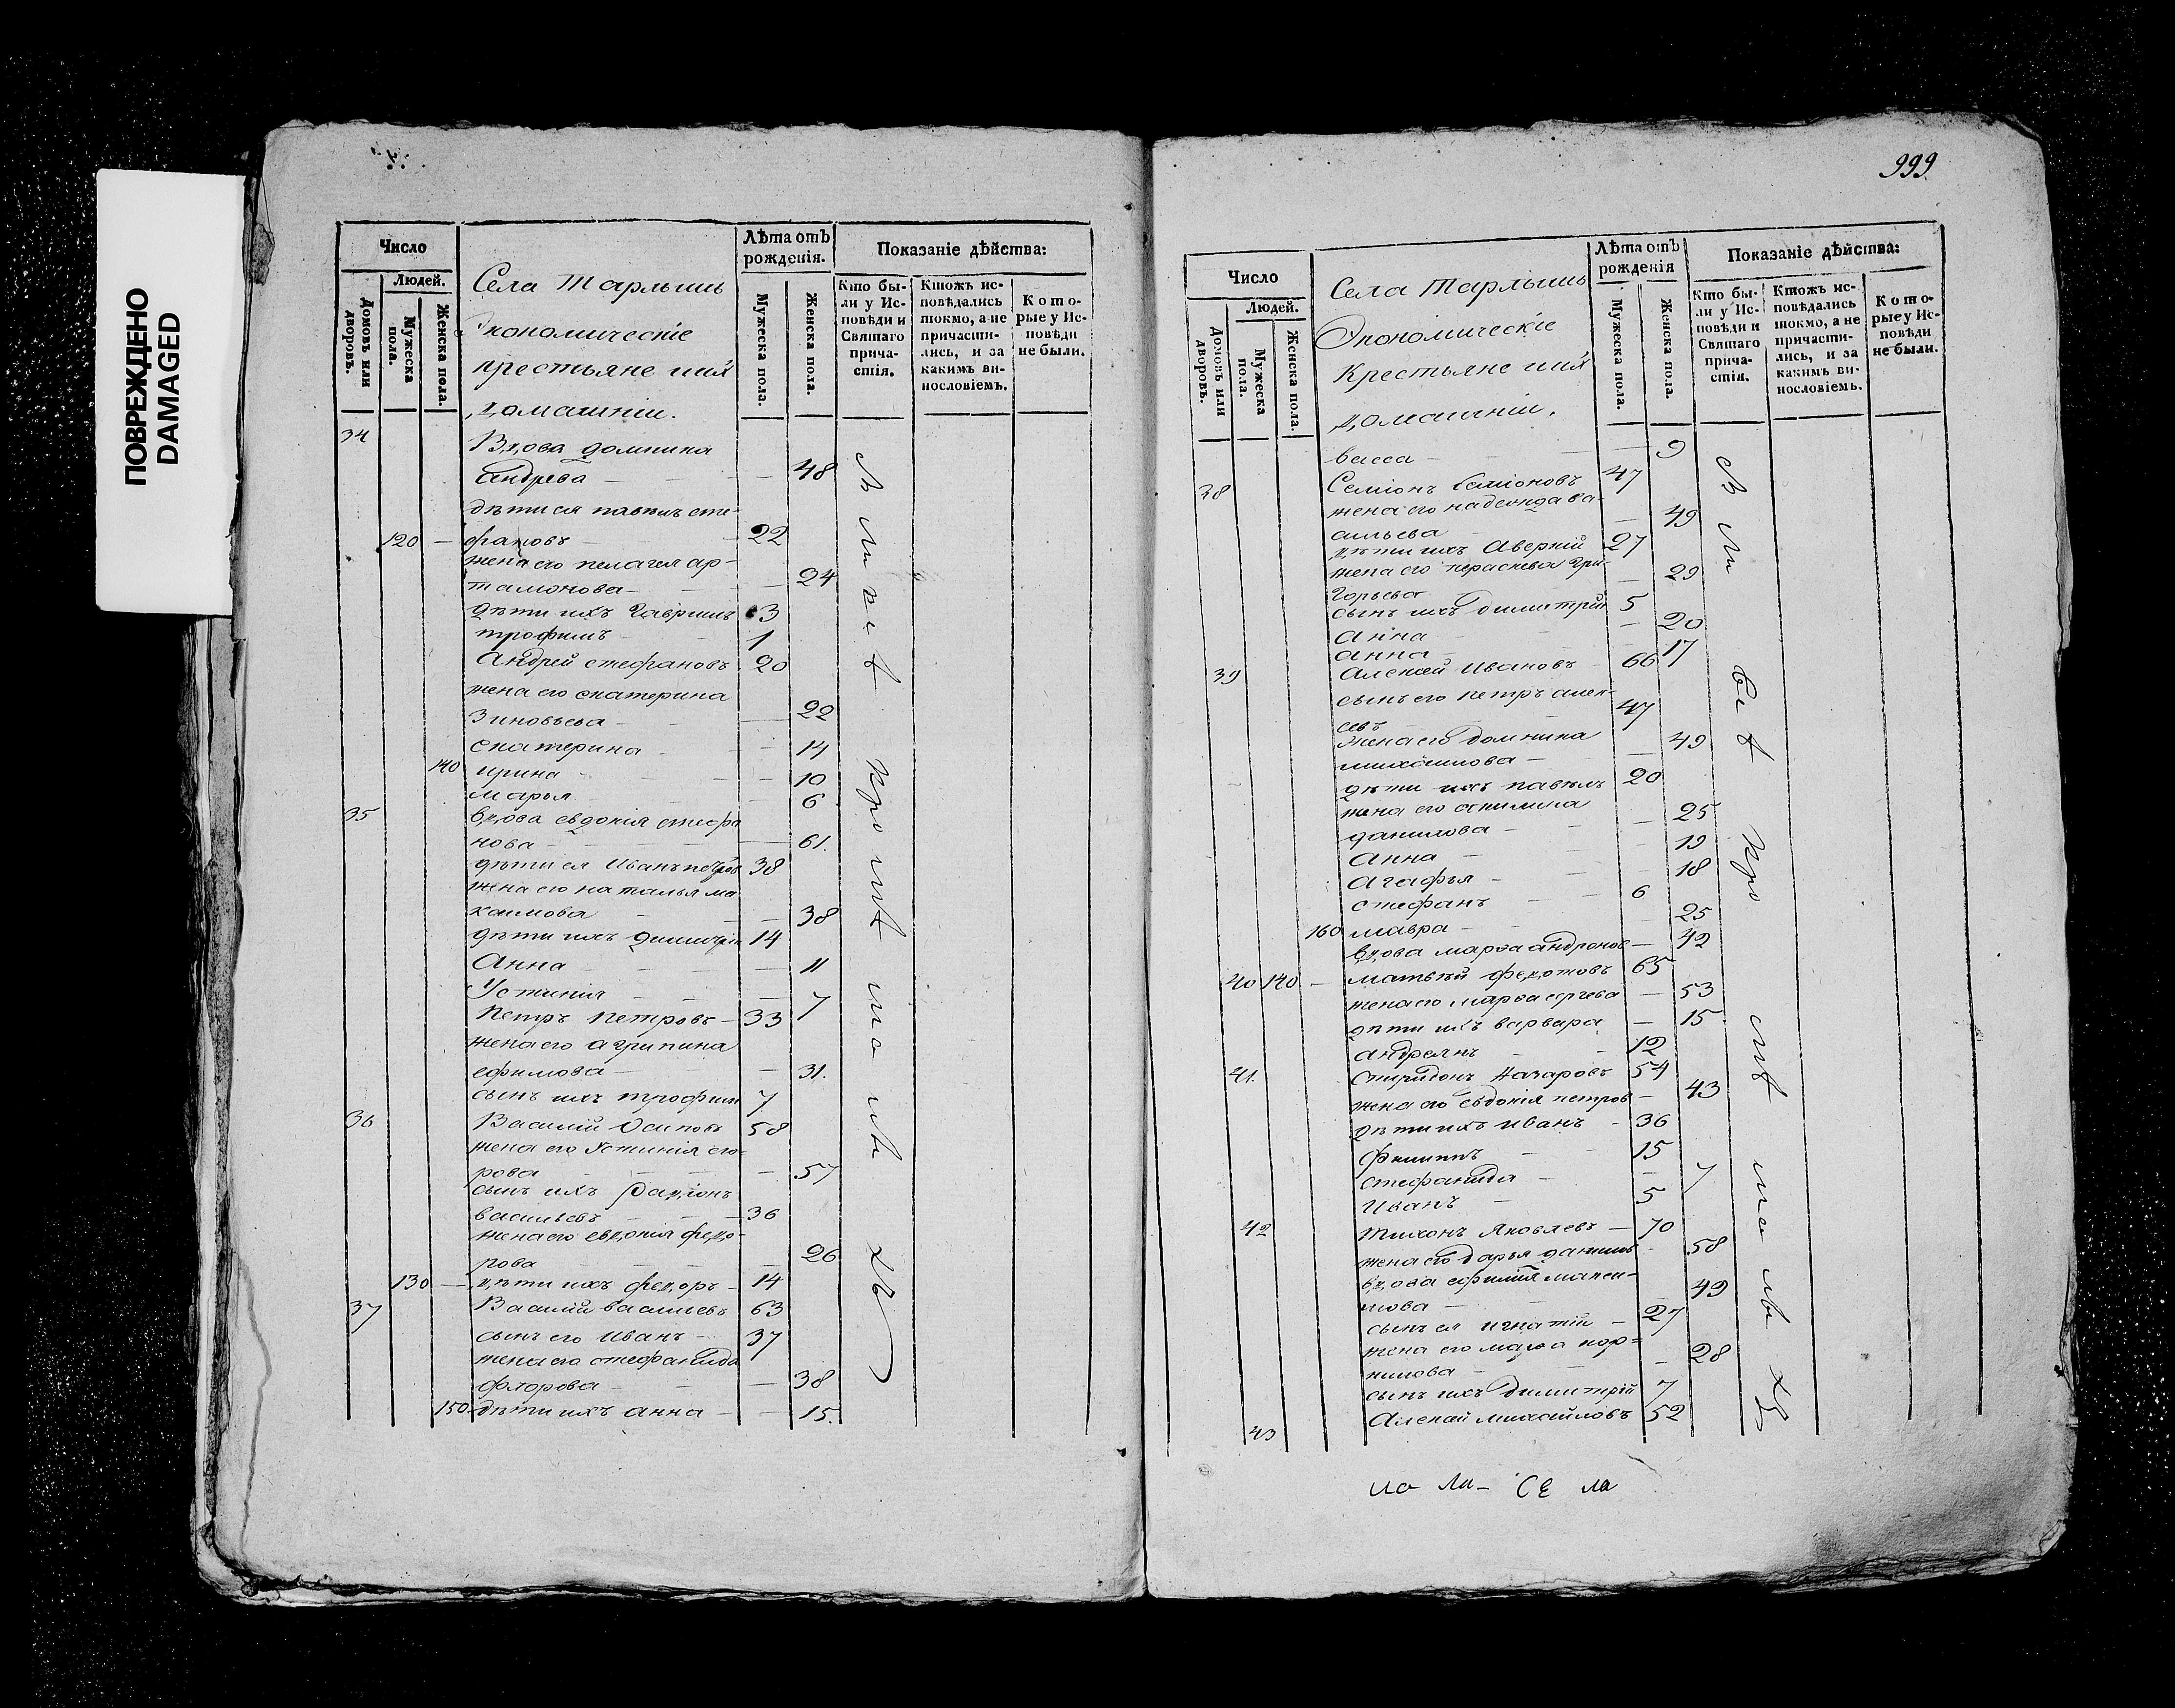 ПОВРЕЖДЕНО
DAMAGED
Число
Людей.
Домовъ или дворовъ.
Мужеска пола.
Женска пола.
Села Тарлыши
Экономическіе
крестьяне ихъ
домашніи.
Лѣта отъ рожденія.
Мужеска пола.
Женска пола.
Показаніе дѣйства:
Кто бы-
ли у Ис-
повѣди и
Святаго
прича-
стія.
Ктожъ ис-
повѣдались
токмо, а не
причасти-
лись, и за
какимъ ви-
нословіемъ.
Кото-
рые у Ис-
повѣди
не были.
34 Вдова домнина
андрева — 48
дѣти ея павелъ сте-
120 — фановъ — 22
жена его пелагея ар-
тамонова — 24
дѣти ихъ Гаврилъ 3
трофимъ — 1
Андрей стефановъ 20
жена его екатерина
Зиновьева — 22
екатерина — 14
140 ирина — 10
марья — 6
35 вдова евдокія стефа
нова — 61.
дѣти ея Иванъ петров 38
жена его наталья ма
каимова — 38
дѣти ихъ димитрій 14
Анна — 11
Устинія — 7
Петръ Петровъ — 33
жена его агрипина
ефимова — 31.
сынъ ихъ трофим 7
36 Василій Осипов 58
жена его Устинія его-
рова — 57
сынъ ихъ Радіонъ
васильевъ — 36
жена его евдокія федо-
рова — 26
130 — дѣти ихъ федоръ — 14
37 Василій васильевъ 63
сынъ его Иванъ — 37
жена его стефанида
флорова — 38
150 дѣти ихъ анна — 15.
999
Число
Людей.
Домовъ или дворовъ.
Мужеска пола.
Женска пола.
Села Тарлыши
Экономическіе
Крестьяне ихъ
домашніи.
Лѣта отъ рожденія
Мужеска пола.
Женска пола.
Показаніе дѣйства:
Кто бы-
ли у Ис-
повѣди и
Святаго
прича-
стія.
Ктожъ ис-
повѣдались
токмо, а не
причасти-
лись, и за
какимъ ви-
нословіемъ.
Кото-
рые у Ис-
повѣди
не были.
васса — 9
38 Семіонъ Семіоновъ 47
жена его надежда ва-
сильева — 49
дѣти ихъ Аверкій 27
жена его параскева Гри-
горьева — 29
сынъ ихъ димитрій 5
анна — 20
анна — 17
39 Алексѣй Ивановъ — 66
сынъ его петръ алек-
сѣевъ — 47
жена его домнина
михаилова — 49
дѣти ихъ павелъ 20
жена его акилина
данилова — 25
Анна — 19
Агафья — 18
стефанъ — 6
160 мавра — 25
вдова марѳа андронов — 42
40 140 — матвѣй федотовъ 65
жена его марѳа сергева — 53
дѣти ихъ варвара — 15
андреянъ — 12
41. Спиридонъ Назаровъ 54
жена его евдокія петров — 43
дѣти ихъ иванъ — 36
филиппъ — 15
стефанида — 7
Иванъ — 5
42 Тихонъ Яковлевъ — 70
жена его дарья данилов — 58
вдова ефимія макси-
мова — 49
сынъ ея игнатій — 27
жена его марѳа кор-
нилова — 28
сынъ ихъ димитрій 7
43 Алексѣй михайловъ 52